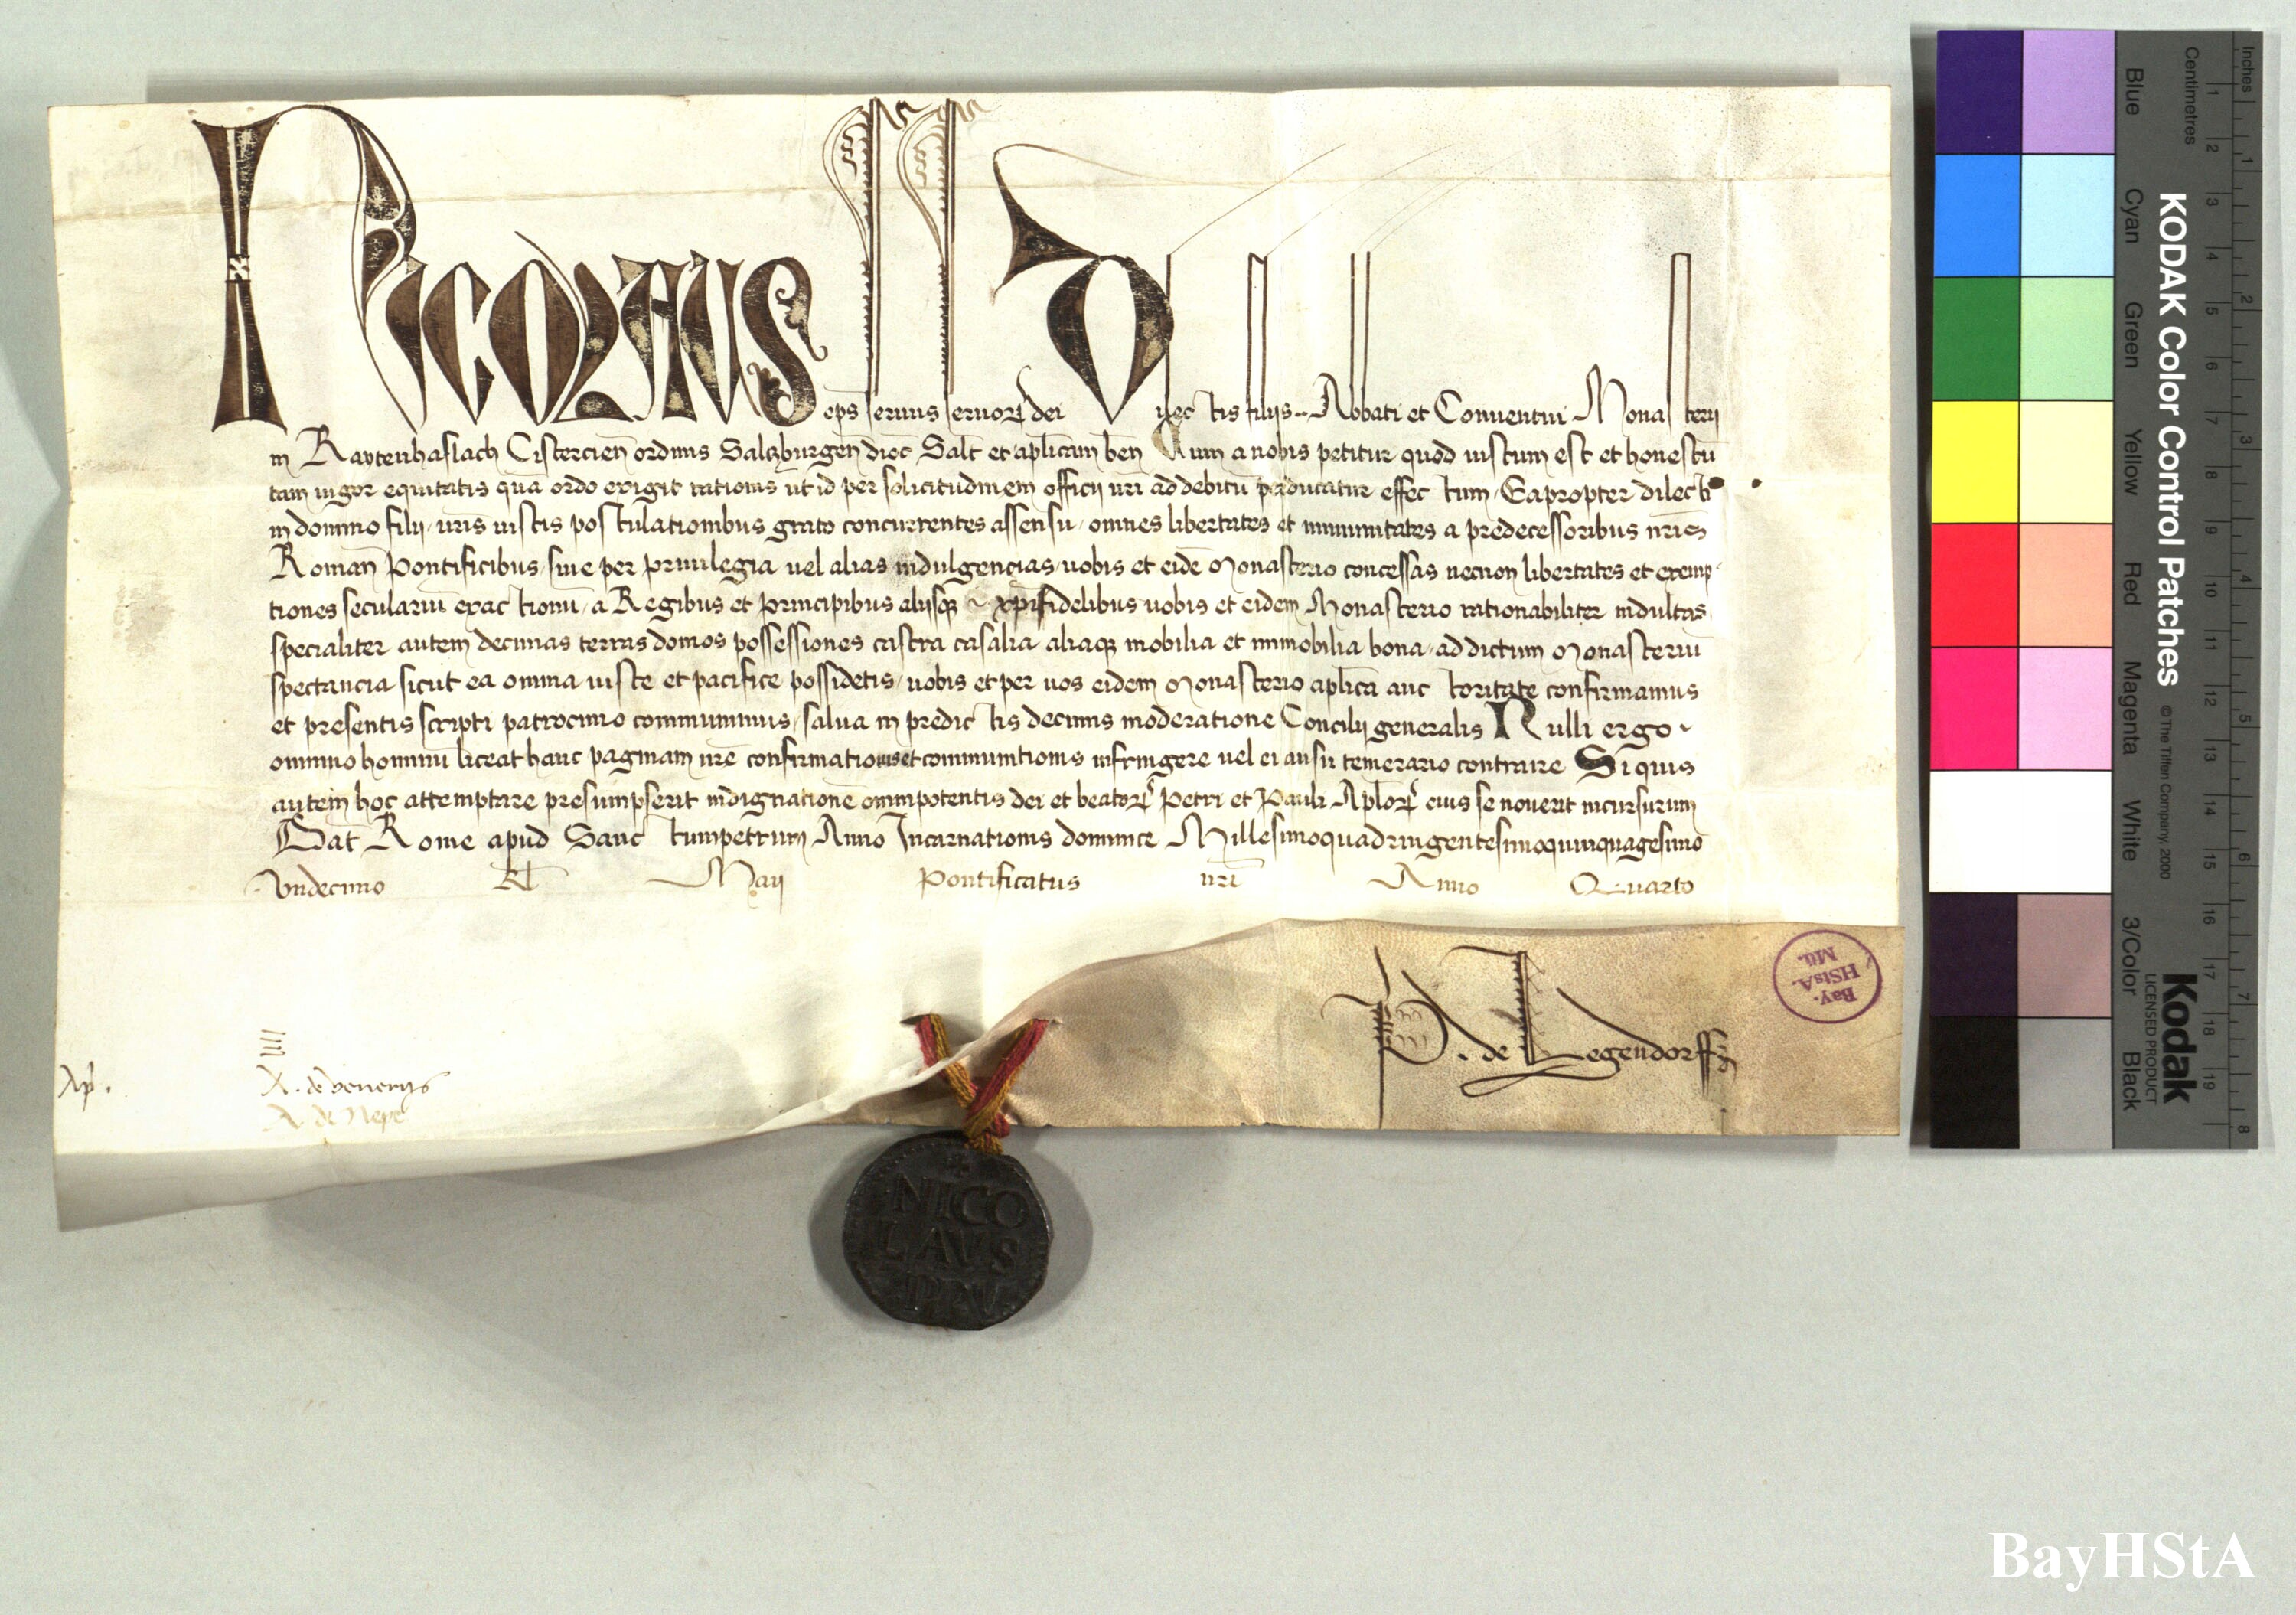 NICOLAUS ep̄s seruus seruoꝝ dei Dilectis filijs .. Abbati et Conuentui Monasterij
in Raytenhaslach Cistercieñ ordinis Salczburgeñ dioc̄ Salt̄ et aplicam̄ ben̄ Cum a nobis petitur quod iustum est et honestū
tam uigor equitatis quā ordo exigit rationis ut id per solicitudinem officij nr̄i ad debitū perducatur effectum / Eapropter dilecti
in domino filij / ur̄is iustis postulationibus grato concurrentes assensu / omnes libertates et immunitates a predecessoribus nr̄is
Romañ Pontificibus / siue per priuilegia uel alias indulgencias / uobis et eidē Monasterio concessas necnon libertates et exemp-
tiones seculariū exactionū / a Regibus et Principibus alijsqꝫ ~ xp̄ifidelibus uobis et eidem Monasterio rationabiliter indultas
specialiter autem decimas terras domos possessiones castra casalia aliaqꝫ mobilia et immobilia bona / ad dictum Monasteriū
spectancia sicut ea omnia iuste et pacifice possidetis / uobis et per uos eidem Monasterio aplicā auctoritate confirmamus
et presentis scripti patrocinio communimus / salua in predictis decimis moderatione Concilij generalis Nulli ergo ~
omnino hominū liceat hanc paginam nr̄e confirmationis et communitionis infringere uel ei ausu temerario contraire Siquis
autem hoc attemptare presumpserit indignationē omnipotentis dei et beatoꝝ Petri et Pauli Aplōꝝ eius se nouerit incursurum
Dat̄ Rome apud Sanctumpetrum Anno Incarnationis dominice Millesimoquadringentesimoquinquagesimo
Vndecimo kl̄ Maij Pontificatus nr̄i Anno Quarto
P. de Legendorff
Bay.
HStsA.
Mü.
A. de veneriis
A. de Nepe
NICO
LAVS
PP V
Inches
Centimetres
1 2 3 4 5 6 7 8 9 10 11 12 13 14 15 16 17 18 19
1 2 3 4 5 6 7 8
Blue Cyan Green Yellow Red Magenta White 3/Color Black
KODAK Color Control Patches
© The Tiffen Company, 2000
Kodak
LICENSED PRODUCT
BayHStA